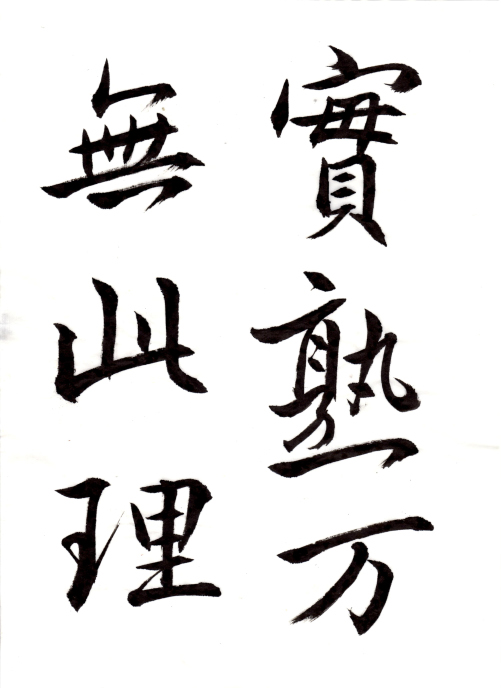 實熟万
無此理